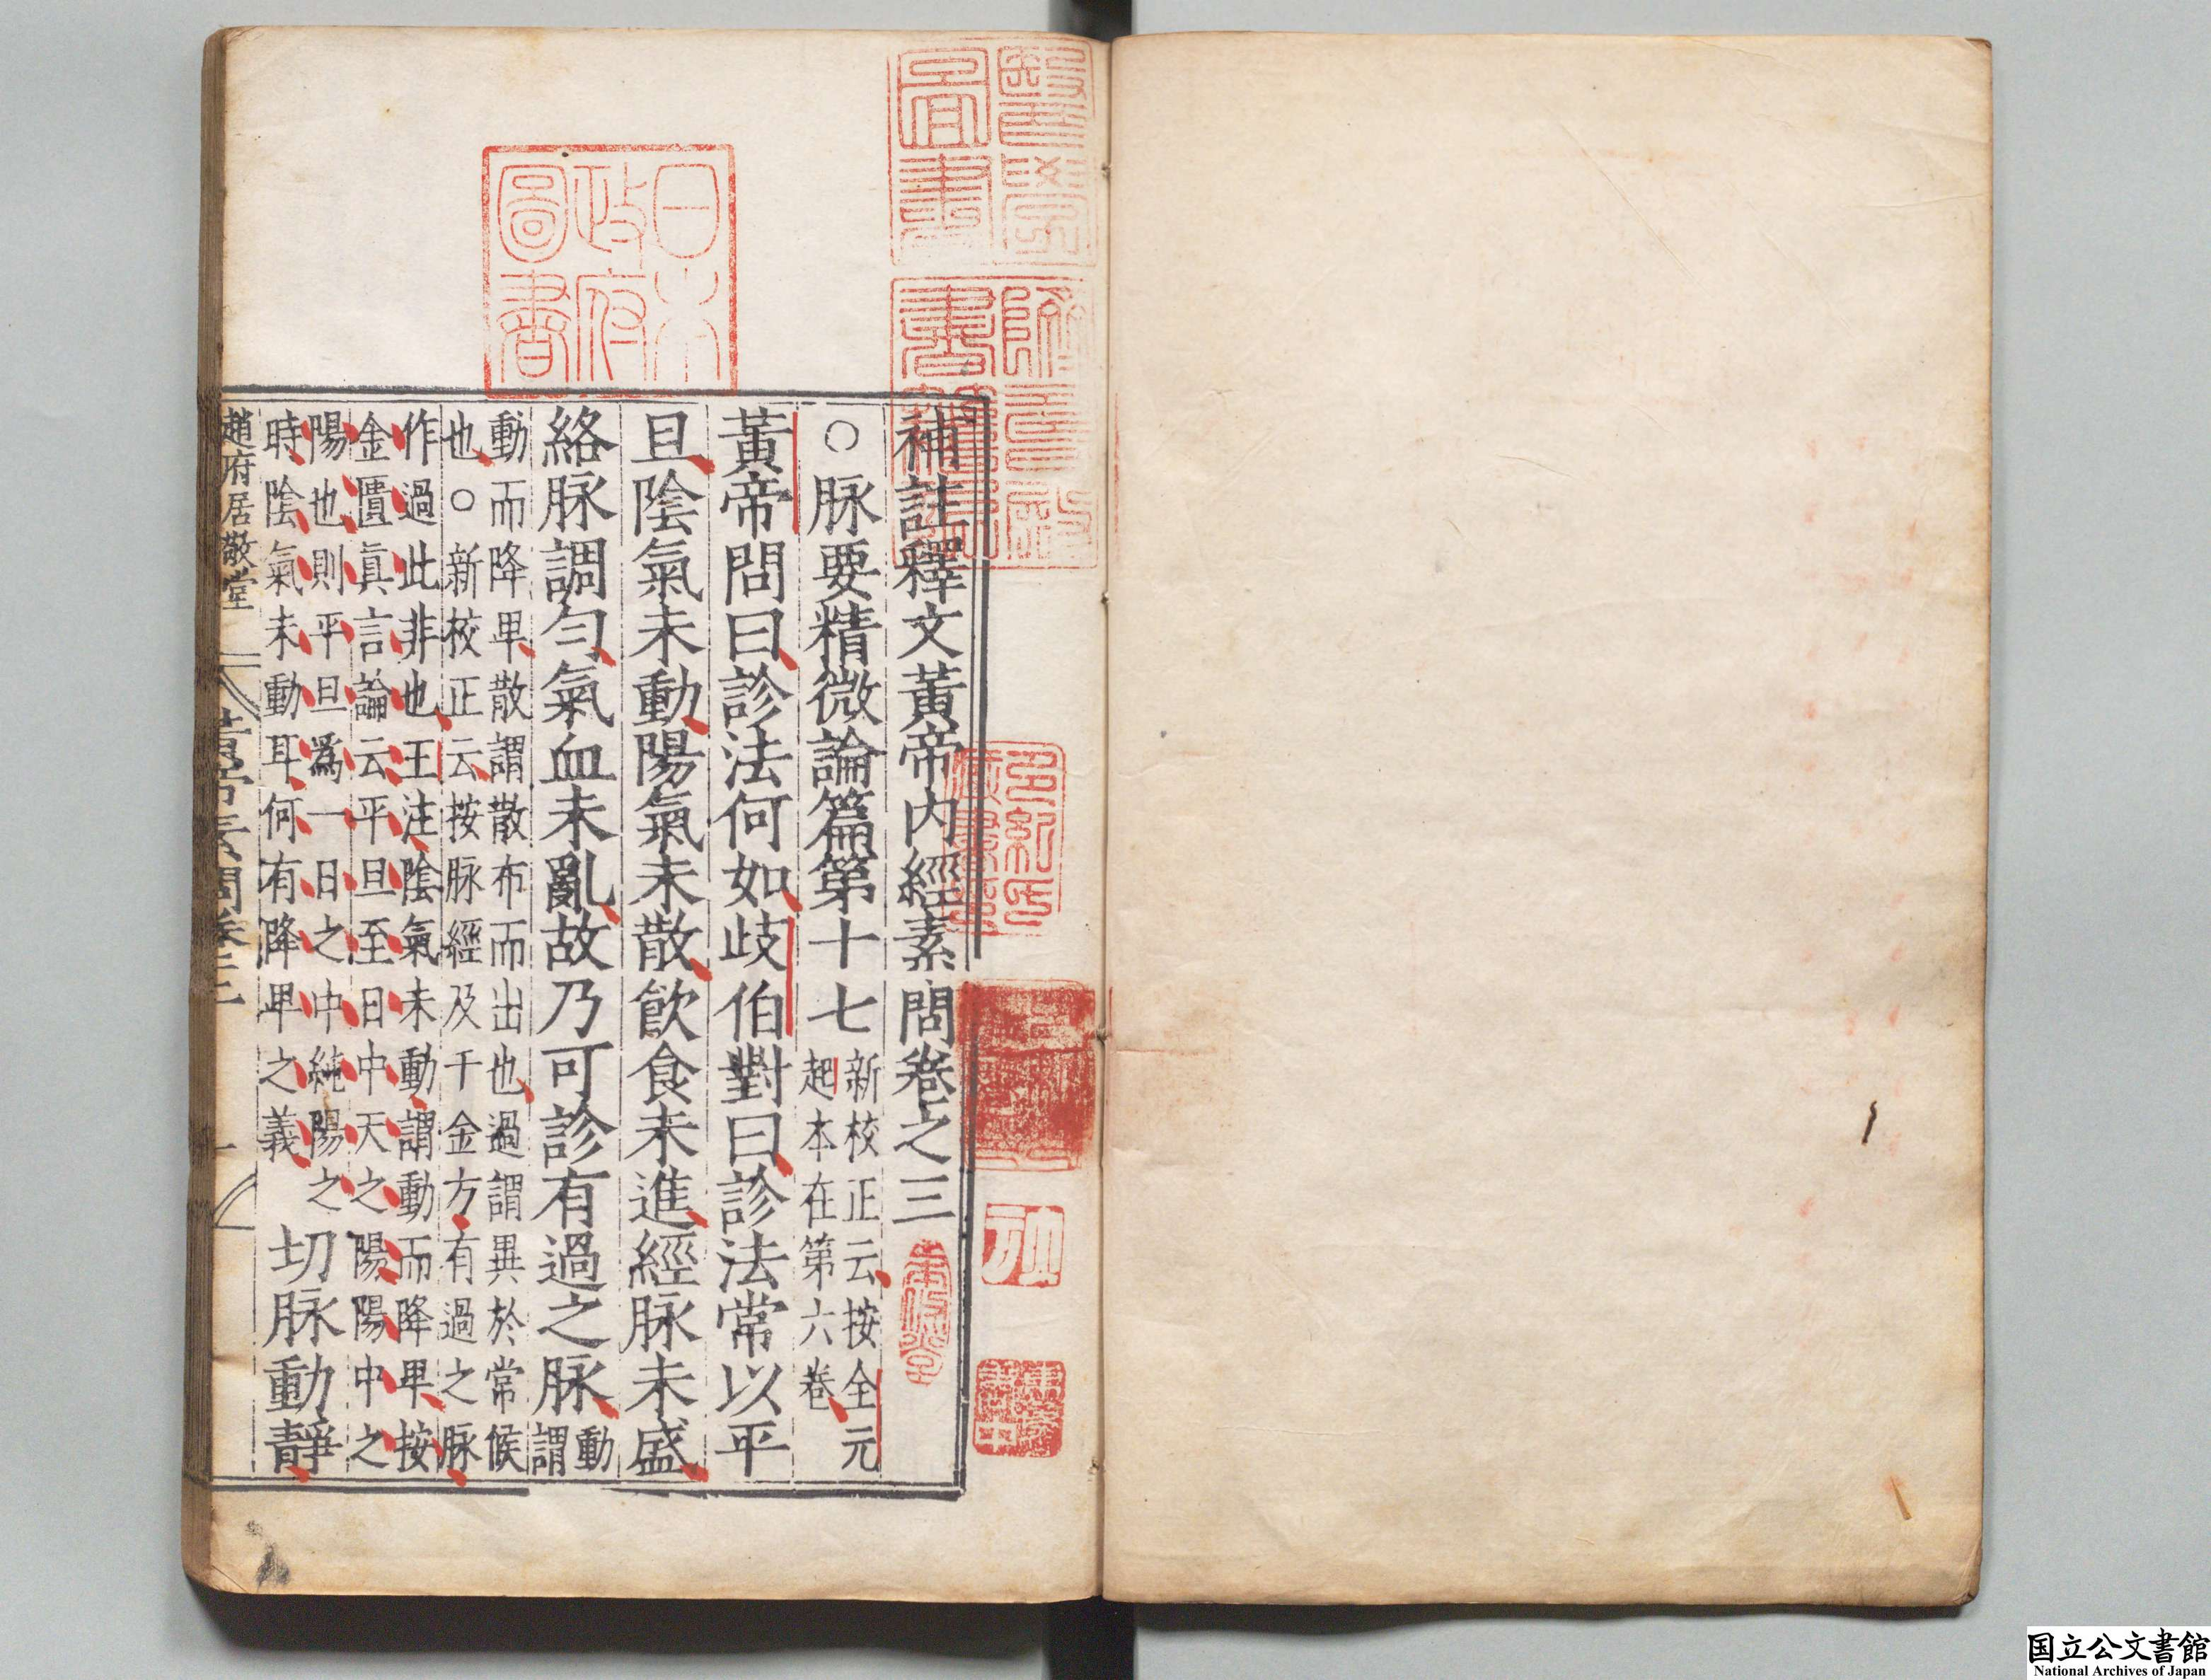 補註釋文黃帝內經素問卷之三
○脉要精微論篇第十七
新校正云按全元
起本在第六卷
黃帝問曰診法何如歧伯對曰診法常以平
旦陰氣未動陽氣未散飲食未進經脉未盛
絡脉調勻氣血未亂故乃可診有過之脉
動
謂
動而降卑散謂散布而出也過謂異於常候
也○新校正云按脉經及千金方有過之脉
作過此非也王注陰氣未動謂動而降卑按
金匱眞言論云平旦至日中天之陽陽中之
陽也則平旦爲一日之中純陽之
時陰氣未動耳何有降卑之義
切脉動靜
趙府居敬堂
日本
政府
圖書
国立公文書館
National Archives of Japan